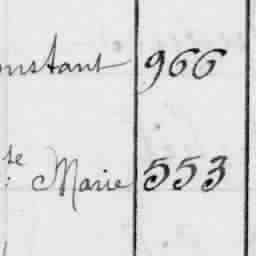 onstant 966
te : Marie 553